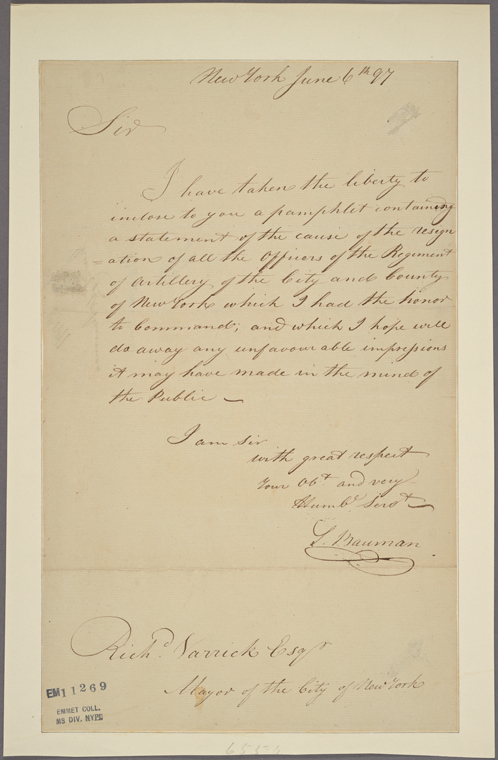 New York June 6th 97
Sir
I have taken the liberty to
inclose to you a pamphlet containing
a statement of the cause of the resign
=ation of all the Officers of the Regiment
of Artillery, of the City and County
of New York which I had the honor
to Command; and which I hope will
do away any unfavourable impressions
it may have made in the mind of
the Public —
I am Sir
with great respect
Your Obt and very
Humbl Servt
S. Bauman
Richd Varrick Esqr
Mayor of the City of New York
EM11269
EMMET COLL.
MS DIV. NYPL